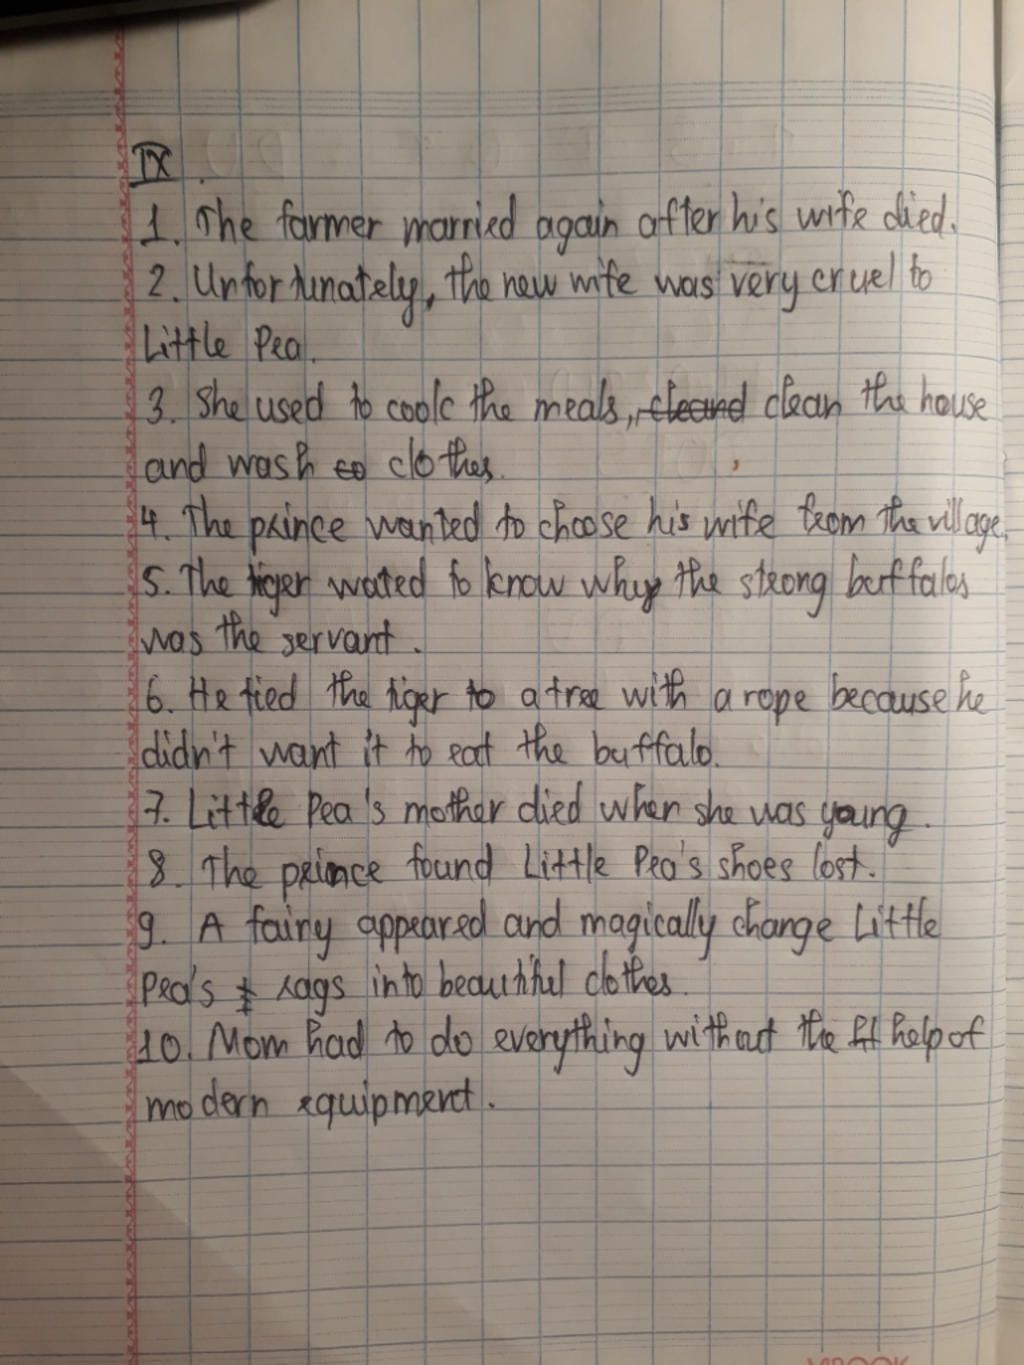 IX.
1. The farmer married again after his wife died.
2. Unfortunately, the new wife was very cruel to
Little Pea.
3. She used to cook the meals, cleand clean the house
and wash clothes.
4. The prince wanted to choose his wife from the village.
5. The tiger wated to know why the strong buffalos
was the servant.
6. He tied the tiger to a tree with a rope because he
didn't want it to eat the buffalo.
7. Little Pea's mother died when she was young.
8. The prince found Little Pea's shoes lost.
9. A fairy appeared and magically change Little
Pea's rags into beautiful clothes.
10. Mom had to do everything without the help of
modern equipment.